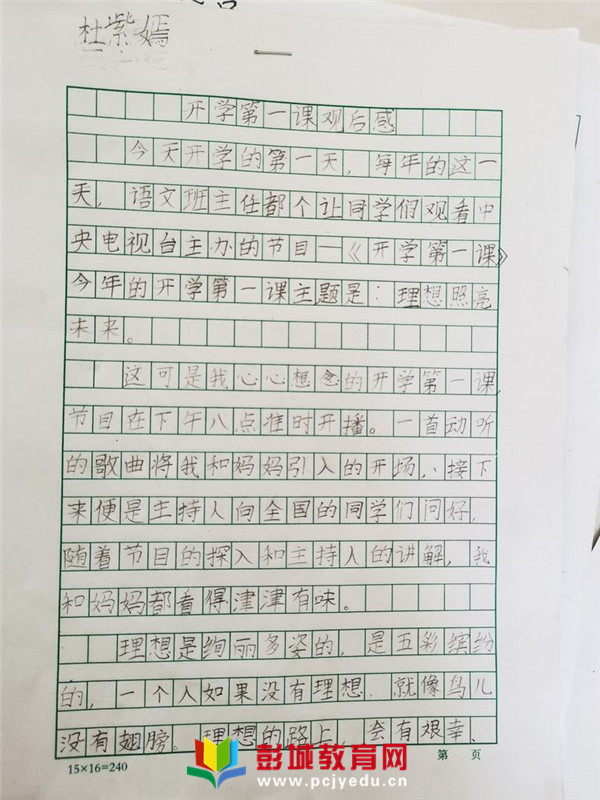 杜紫嫣
开学第一课观后感
今天开学的第一天，每年的这一
天，语文班主任都个让同学们观看中
央电视台主办的节目一《开学第一课》
今年的开学第一课主题是：理想照亮
未来。
这可是我心心想念的开学第一课，
节目在下午八点准时开播。一首动听
的歌曲将我和妈妈引入的开场，接下
来便是主持人向全国的同学们问好，
随着节目的探入和主持人的讲解，我
和妈妈都看得津津有味。
理想是绚丽多姿的，是五彩缤纷
的，一个人如果没有理想，就像鸟儿
没有翅膀。理想的路上，会有艰幸、
15×16=240
第 页
彭城教育网
www.pcjyedu.cn